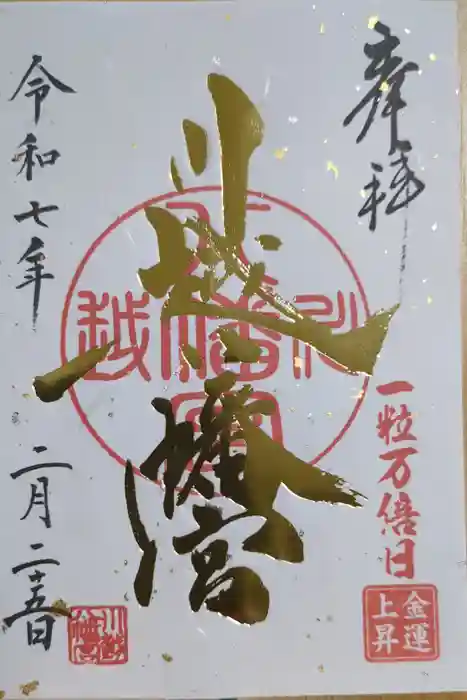 奉拝
一粒万倍日
金運
上昇
川越八幡宮
川越
八幡宮
令和七年 二月二十五日
川越
八幡宮